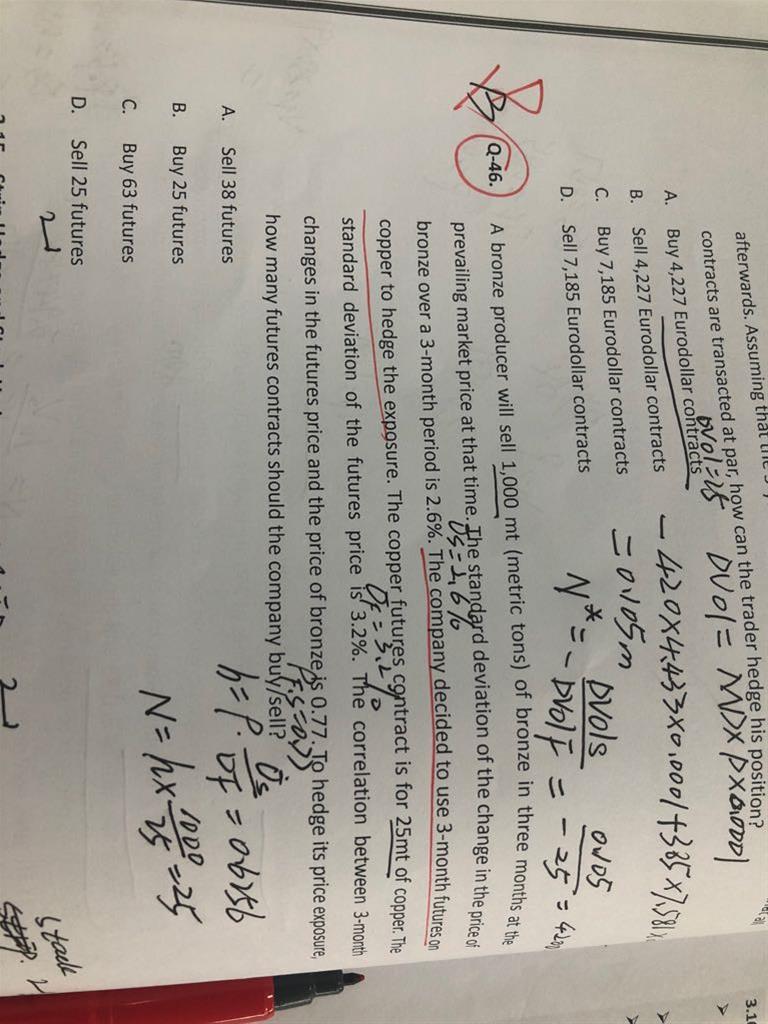 afterwards. Assuming that the
contracts are transacted at par, how can the trader hedge his position?
DV01=25 DV01 = MD×P×0.0001
A. Buy 4,227 Eurodollar contracts
B. Sell 4,227 Eurodollar contracts
C. Buy 7,185 Eurodollar contracts
D. Sell 7,185 Eurodollar contracts
- 420×4.433×0.0001+385×7.581×
= 0.105m
N* = - DV01S / DV01F = - 0.105 / 25 = 420
B
Q-46.
A bronze producer will sell 1,000 mt (metric tons) of bronze in three months at the
prevailing market price at that time. The standard deviation of the change in the price of
σs=2.6%
bronze over a 3-month period is 2.6%. The company decided to use 3-month futures on
copper to hedge the exposure. The copper futures contract is for 25mt of copper. The
σF = 3.2%
standard deviation of the futures price is 3.2%. The correlation between 3-month
changes in the futures price and the price of bronze is 0.77. To hedge its price exposure,
how many futures contracts should the company buy/sell?
A. Sell 38 futures
B. Buy 25 futures
C. Buy 63 futures
D. Sell 25 futures
h=ρ· σs / σF = 0.6256
N = h× 1000 / 25 = 25
Stack
3.1